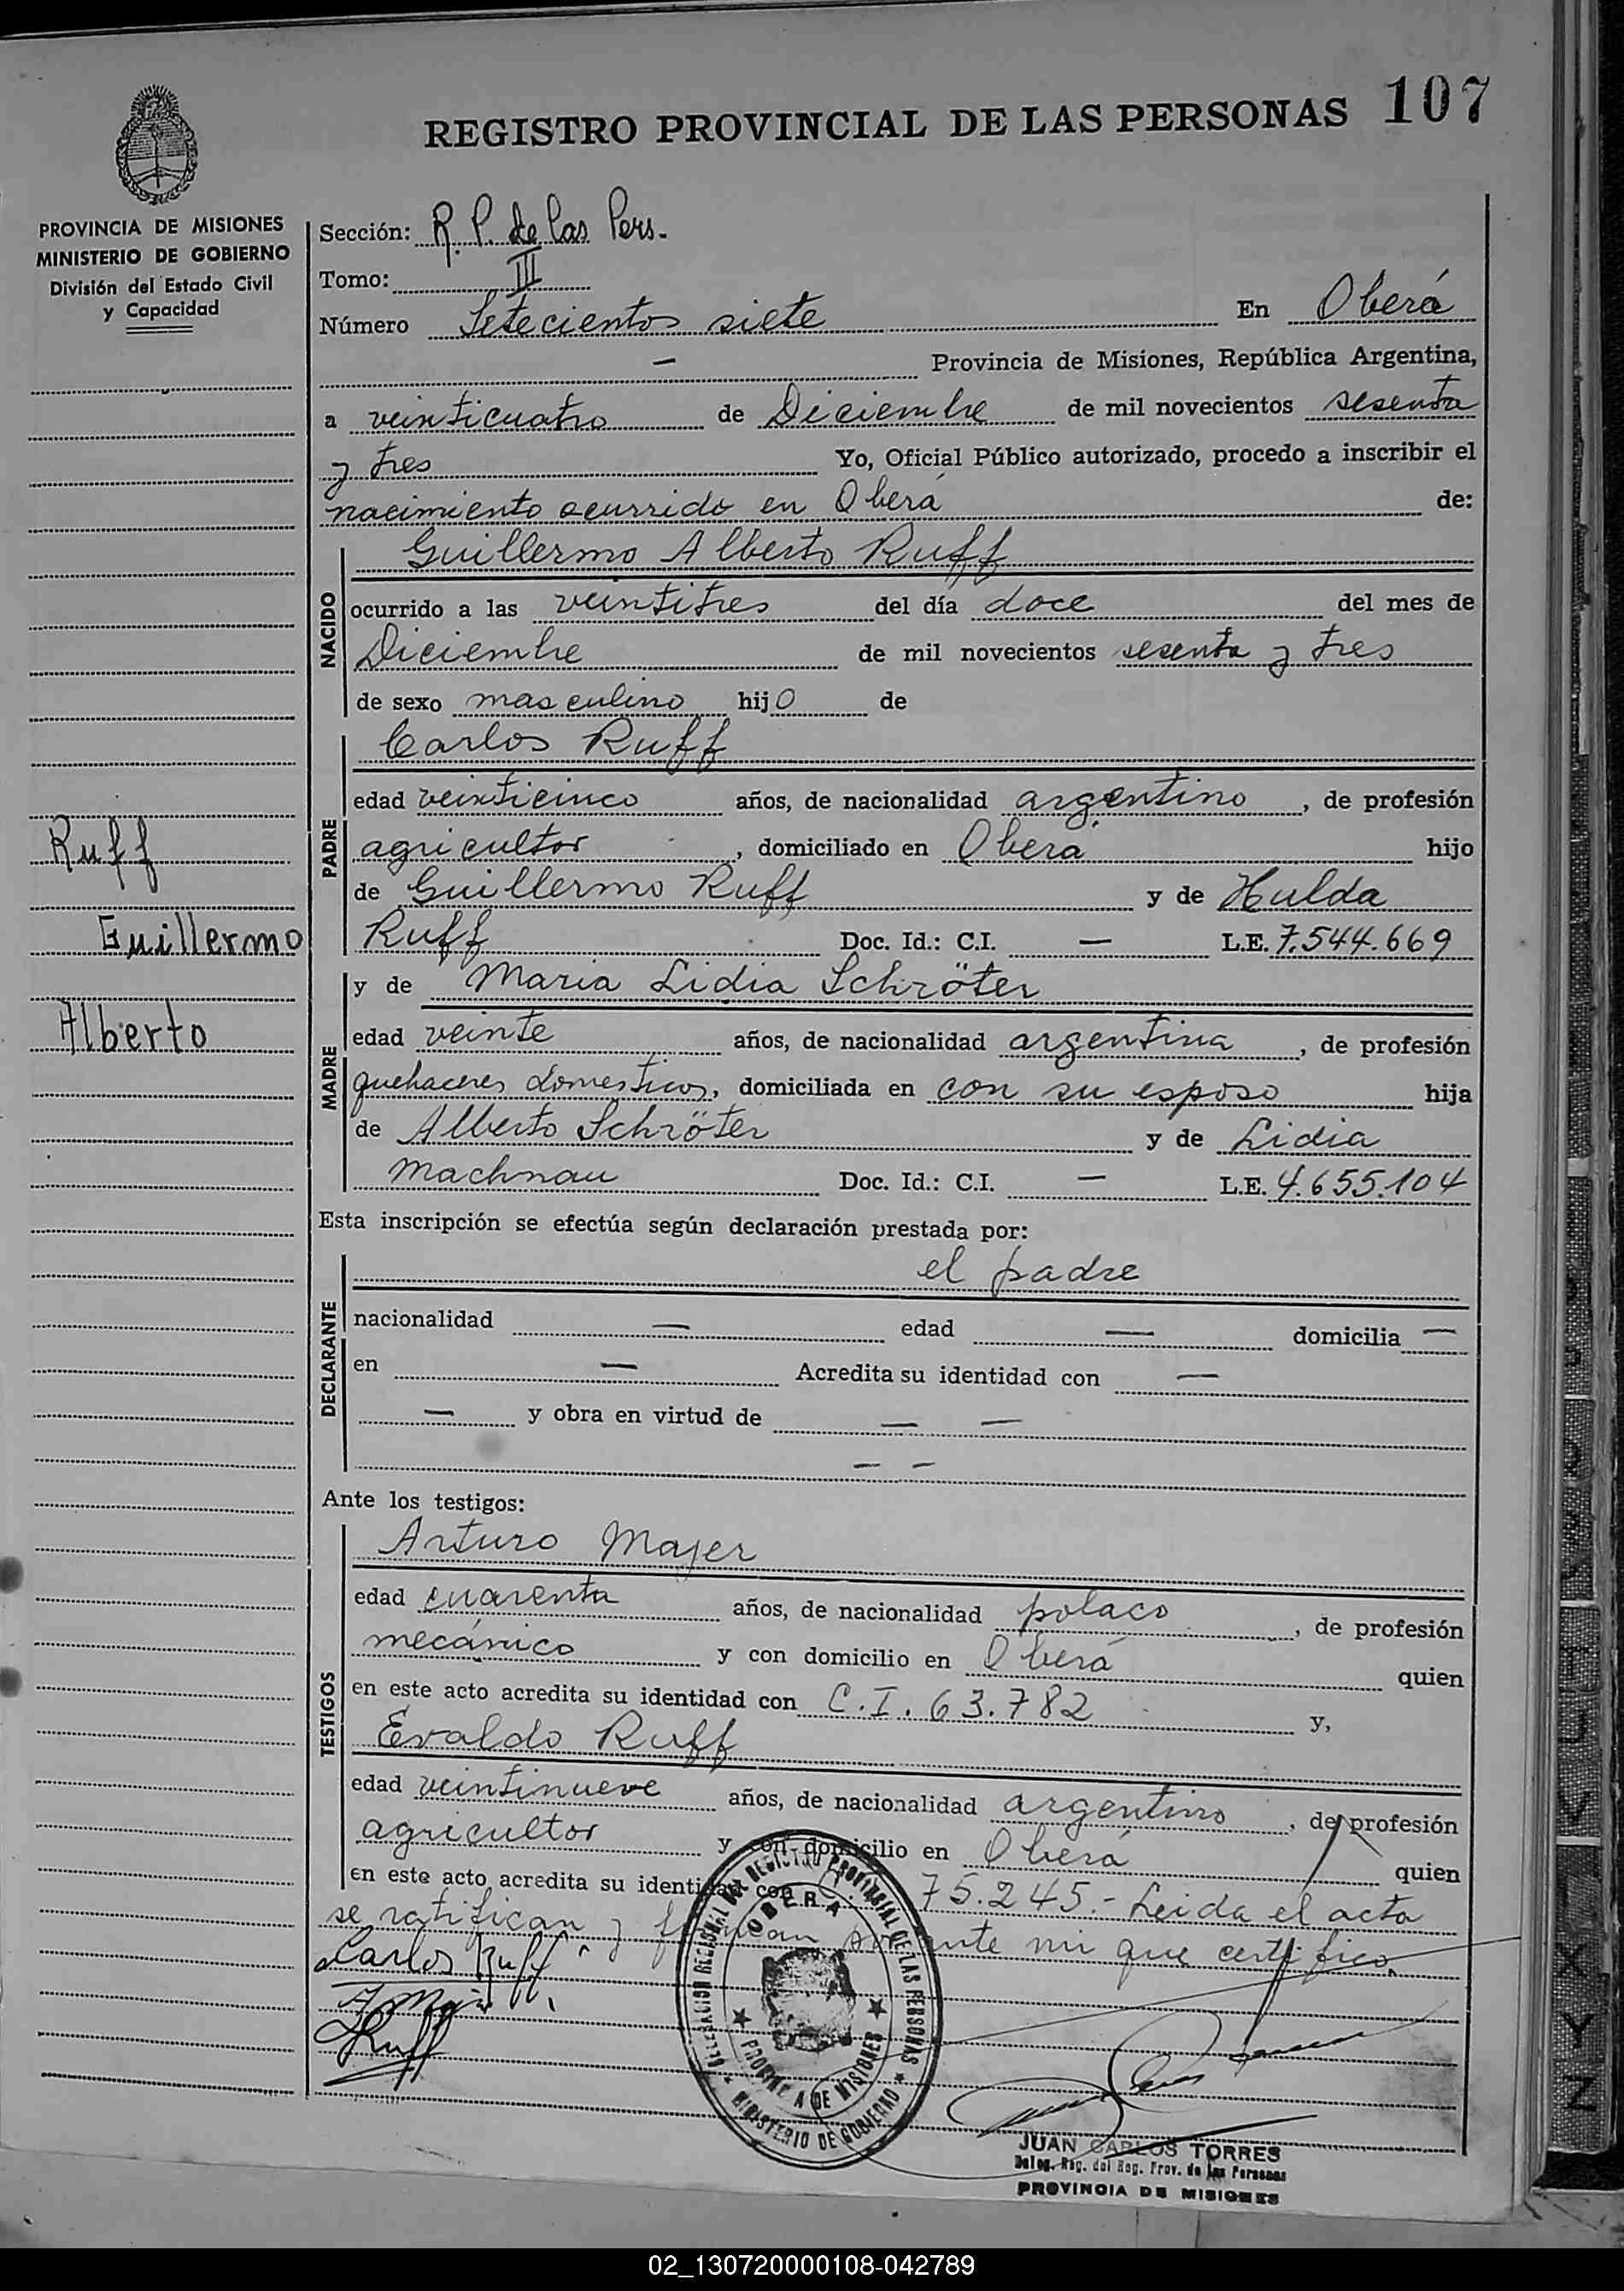 REGISTRO PROVINCIAL DE LAS PERSONAS 107
PROVINCIA DE MISIONES
MINISTERIO DE GOBIERNO
División del Estado Civil
y Capacidad
Ruff
Guillermo
Alberto
Sección: R. P. de las Pers.
Tomo: III
Número Setecientos siete En Oberá
— Provincia de Misiones, República Argentina,
a veinticuatro de Diciembre de mil novecientos sesenta
y tres Yo, Oficial Público autorizado, procedo a inscribir el
nacimiento ocurrido en Oberá de:
NACIDO
Guillermo Alberto Ruff
ocurrido a las veintitres del día doce del mes de
Diciembre de mil novecientos sesenta y tres
de sexo masculino hijo de
PADRE
Carlos Ruff
edad veinticinco años, de nacionalidad argentino, de profesión
agricultor, domiciliado en Oberá hijo
de Guillermo Ruff y de Hulda
Ruff Doc. Id.: C.I. — L.E. 7.544.669
MADRE
y de Maria Lidia Schröter
edad veinte años, de nacionalidad argentina, de profesión
quehaceres domesticos, domiciliada en con su esposo hija
de Alberto Schröter y de Lidia
Machnau Doc. Id.: C.I. — L.E. 4.655.104
Esta inscripción se efectúa según declaración prestada por:
DECLARANTE
el padre
nacionalidad — edad — domicilia —
en — Acredita su identidad con —
— y obra en virtud de — —
— —
Ante los testigos:
TESTIGOS
Arturo Majer
edad cuarenta años, de nacionalidad polaco, de profesión
mecánico y con domicilio en Oberá quien
en este acto acredita su identidad con C.I. 63.782 y,
Evaldo Ruff
edad veintinueve años, de nacionalidad argentino, de profesión
agricultor y con domicilio en Oberá quien
en este acto acredita su identidad con 75.245.- Leida el acta
se ratifican y firman por ante mi que certifico.
Carlos Ruff
Ruff
DELEGACION REGIONAL DEL REGISTRO PROVINCIAL DE LAS PERSONAS
OBERA
PROVINCIA DE MISIONES
MINISTERIO DE GOBIERNO
JUAN CARLOS TORRES
Deleg. Reg. del Reg. Prov. de las Personas
PROVINCIA DE MISIONES
02_130720000108-042789